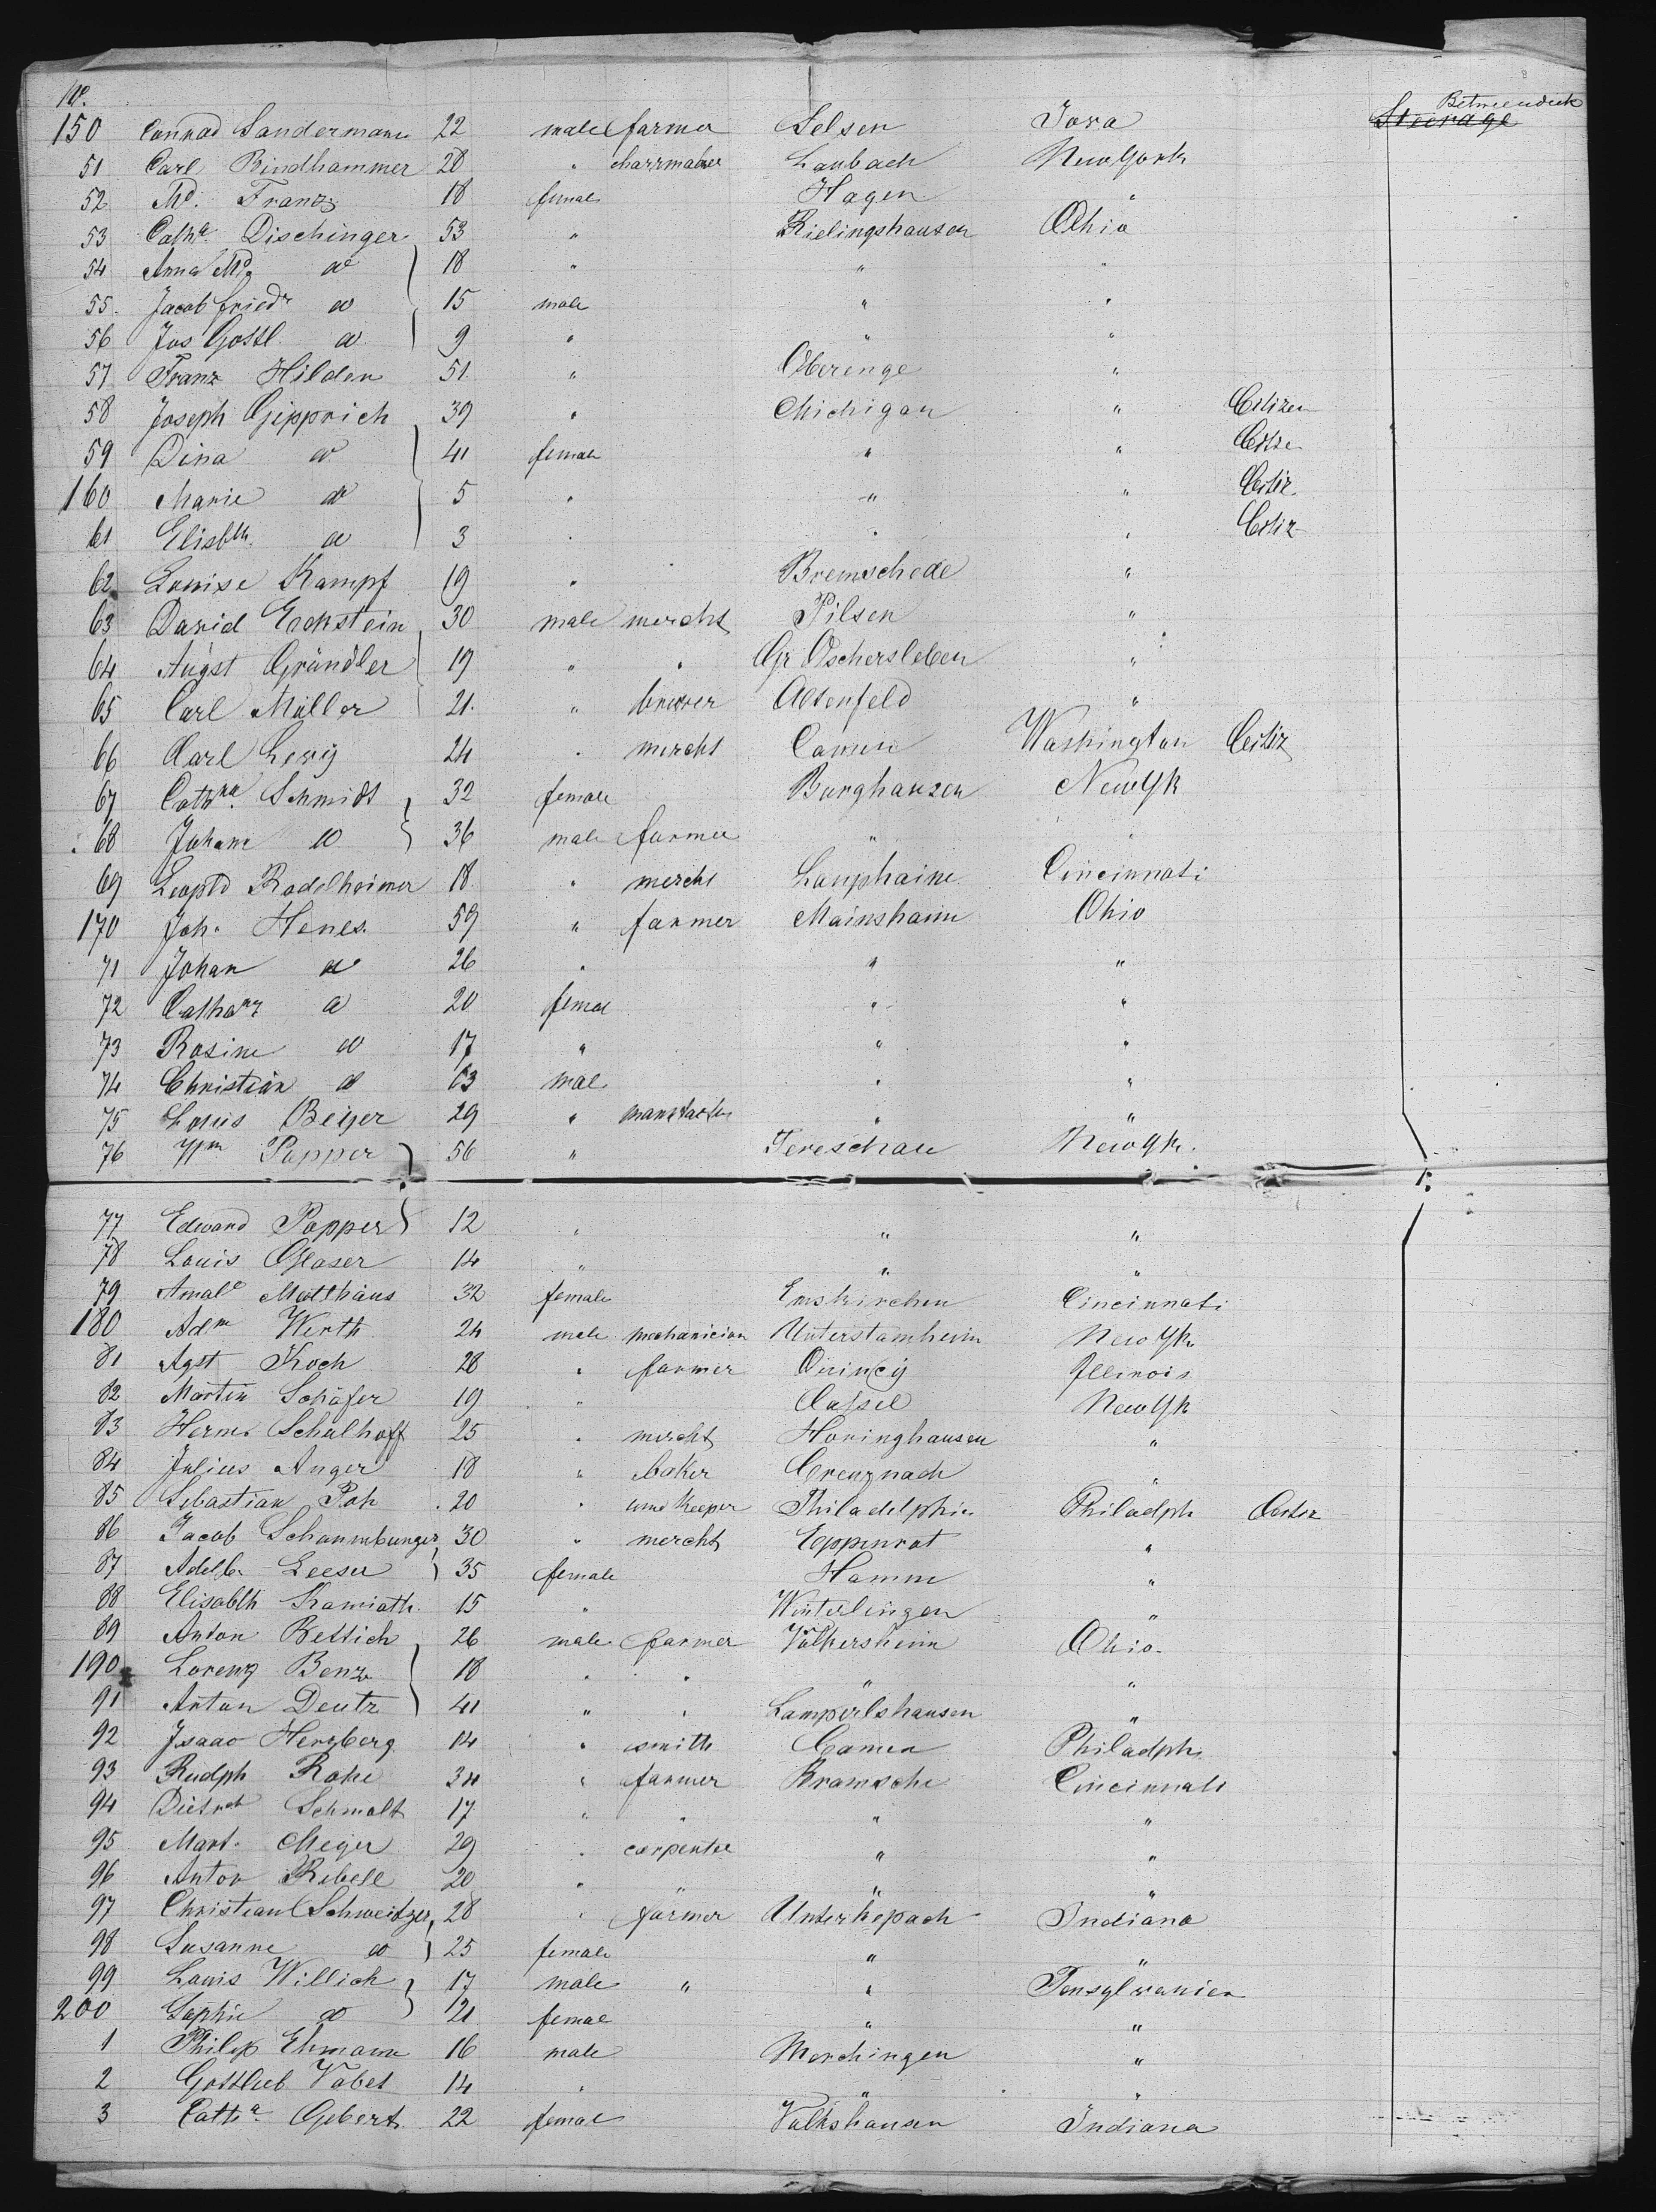 No. Betweendeck
150 Conrad Sandermann 22 male farmer Selsen Iova Steerage
51 Carl Bindhammer 28 " Laubach New York
52 Md. Franz 18 female Hagen "
53 Catha. Dischinger 53 " Rielingshausen Ohio
54 Anna Md. do 18 " " "
55. Jacob Friedr do 15 male " "
56 Jos Gottl. do 9 " " "
57 Franz Hilden 51. " "
58 Joseph Gipprich 39 " Michigan " Citizen
59 Dina do 41 female " " Citize
160 Marie do 5 " " " Citiz.
61 Elisbth. do 3 " " " Citiz
62 Louise Kampf 19 " Bremschede "
63 David Eckstein 30 male mercht Pilsen "
64 Augst Gründler 19 " " Gr Oschersleben "
65 Carl Müller 21. " brewer Altenfeld "
66 Carl Levy 24 " mercht Camen Washington Citiz
67 Cathna. Schmidt 32 female Burghausen NewYk
68 Johann do 36 male farmer " "
69 Leopld Radelheimer 18 " mercht Lauphaime Cincinnati
170 Joh. Henes. 59 " farmer Mainshaim Ohio
71 Johan do 26 " " "
72 Cathar do 20 femal " "
73 Rosine do 17 " " "
74 Christian do 13 mal " "
75 Louis Beiger 29 " " "
76 Wm Popper 56 " Tereschau NewYk.
77 Edward Popper 12 " " "
78 Louis Glaser 14 " " "
79 Amale Matthäus 32 female Emskirchen Cincinnati
180 Adm Wirth 24 male mechanician Unterstamheim New Yk.
81 Agst Koch 28 " farmer Quincy Illinois
82 Martin Schäfer 19 " Cassel New Yk
83 Herm. Schulhoff 25 " mercht Horinghausen "
84 Julius Anger 18 " baker Creuznach "
85 Sebastian Poh 20 " keeper Philadelphia Philadph Citiz
86 Jacob Schaumburger 30 " mercht Eppenrat "
87 Adelb. Leeser 35 female Hamm "
88 Elisabth Kamiath. 15 " Winterlingen "
89 Anton Bettich 26 male farmer Völkersheim Ohio.
190 Lorenz Benz 18 " " " "
91 Anton Deutz 41 " " Lampertshausen "
92 Isaac Herzberg 14 " smith Camen Philadph
93 Rudph Rohe 34 " farmer Bramsche Cincinnati
94 Dietrch Schmalt 17 " " " "
95 Mart. Meyer 29 " carpenter " "
96 Anton Ribell 20 " " " "
97 Christian Schweitzer 28 " farmer Unterhepach Indiana
98 Susanne do 25 female " "
99 Louis Willich 17 male " " Pensylvanien
200 Sophie do 21 femal " "
1 Philip Ehmann 16 male Morchingen "
2 Gottlieb Vabel 14 " " "
3 Catha. Gebert 22 femal Volkshausen Indiana